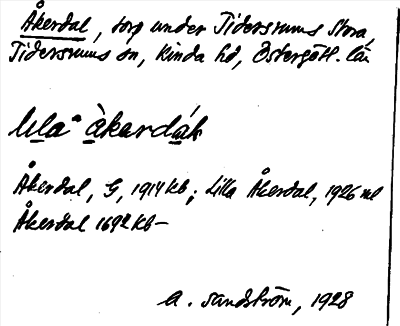 Åkerdal, torp under Tidersrums Stora,
Tidersrums sn, Kinda hd, Östergötl. län
Åkerdal, G, 1914 kb; Lilla Åkerdal, 1926 ml
Åkerdal 1692 kb–
A. Sandström, 1928